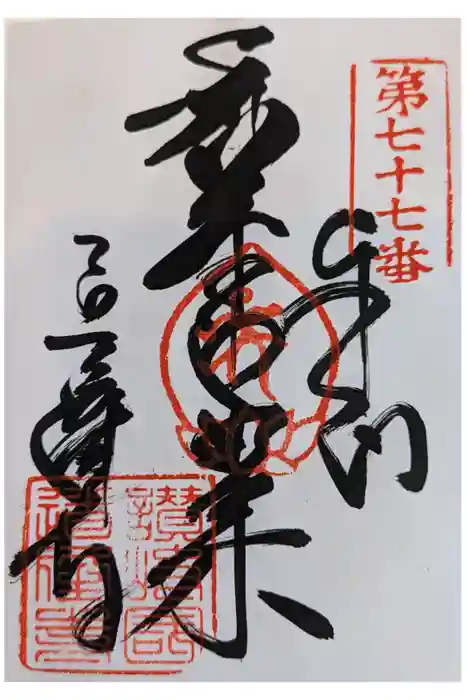 第七十七番
奉納
薬師如来
道隆寺
讃岐國
道隆寺